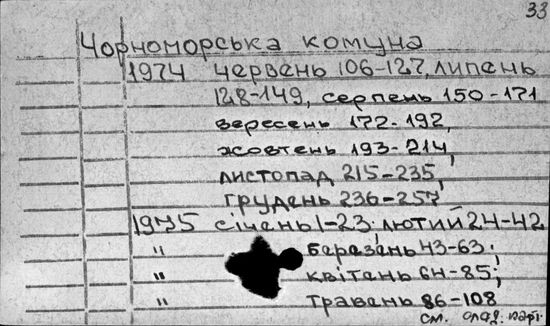 33
Чорноморська комуна
1974 червень 106-127, липень
128-149, серпень 150-171
вересень 172-192,
жовтень 193-214,
листопад 215-235,
грудень 236-257
1975 січень 1-23. лютий 24-42
" березень 43-63;
" квітень 64-85;
" травень 86-108
см. след.